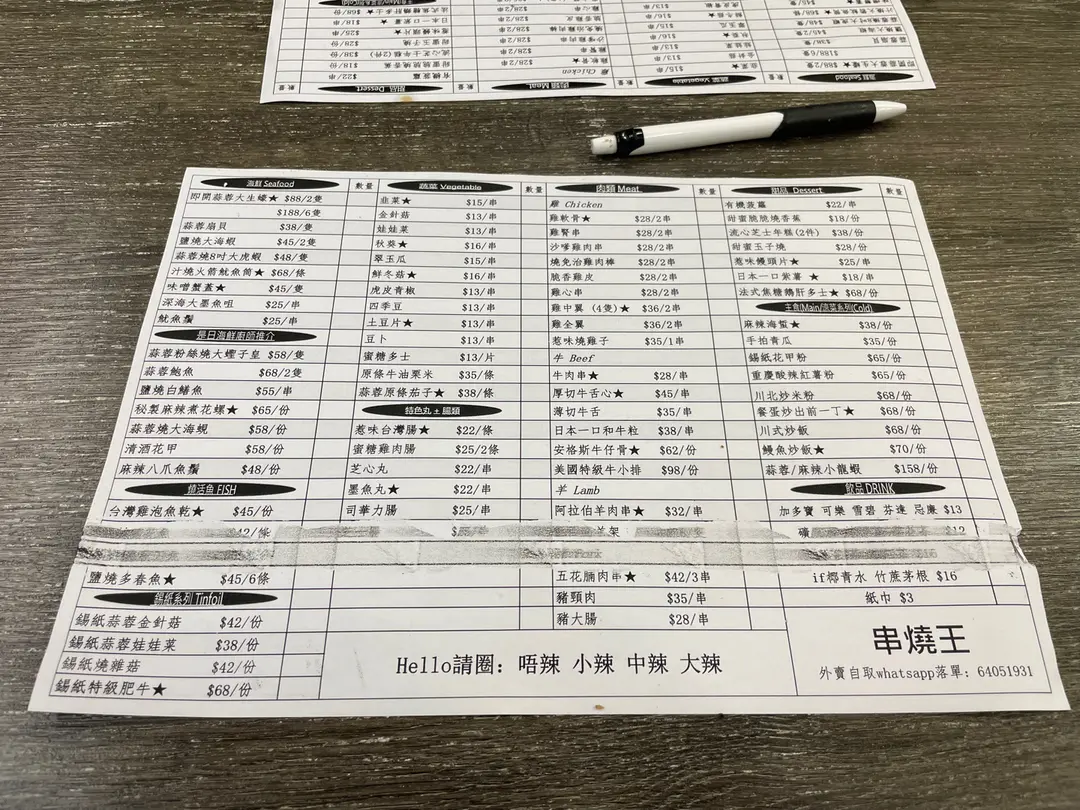 海鮮 Seafood 數量
即開蒜蓉大生蠔★ $88/2隻
$188/6隻
蒜蓉扇貝 $38/隻
鹽燒大海蝦 $45/2隻
蒜蓉燒8吋大虎蝦 $48/隻
汁燒火箭魷魚筒★ $68/條
味噌蟹蓋★ $45/隻
深海大墨魚咀 $25/串
魷魚鬚 $25/串
是日海鮮廚師推介
蒜蓉粉絲燒大蟶子皇 $58/隻
蒜蓉鮑魚 $68/2隻
鹽燒白鱔魚 $55/串
秘製麻辣煮花螺★ $65/份
蒜蓉燒大海蜆 $58/份
清酒花甲 $58/份
麻辣八爪魚鬚 $48/份
燒活魚 FISH
台灣雞泡魚乾★ $45/份
42/條
鹽燒多春魚★ $45/6條
錫紙系列 Tinfoil
錫紙蒜蓉金針菇 $42/份
錫紙蒜蓉娃娃菜 $38/份
錫紙燒雜菇 $42/份
錫紙特級肥牛★ $68/份
蔬菜 Vegetable 數量
韭菜★ $15/串
金針菇 $13/串
娃娃菜 $13/串
秋葵★ $16/串
翠玉瓜 $15/串
鮮冬菇★ $16/串
虎皮青椒 $13/串
四季豆 $13/串
土豆片★ $13/串
豆卜 $13/串
蜜糖多士 $13/片
原條牛油粟米 $35/條
蒜蓉原條茄子★ $38/條
特色丸±腸類
惹味台灣腸★ $22/條
蜜糖雞肉腸 $25/2條
芝心丸 $22/串
墨魚丸★ $22/串
司華力腸 $25/串
肉類 Meat 數量
雞 Chicken
雞軟骨★ $28/2串
雞腎串 $28/2串
沙嗲雞肉串 $28/2串
燒免治雞肉棒 $28/2串
脆香雞皮 $28/2串
雞心串 $28/2串
雞中翼 (4隻)★ $36/2串
雞全翼 $36/2串
惹味燒雞子 $35/1串
牛 Beef
牛肉串★ $28/串
厚切牛舌心★ $45/串
薄切牛舌 $35/串
日本一口和牛粒 $38/串
安格斯牛仔骨★ $62/份
美國特級牛小排 $98/份
羊 Lamb
阿拉伯羊肉串★ $32/串
羊架
五花腩肉串★ $42/3串
豬頸肉 $35/串
豬大腸 $28/串
甜品 Dessert 數量
有機菠蘿 $22/串
甜蜜脆脆燒香蕉 $18/份
流心芝士年糕(2件) $38/份
甜蜜玉子燒 $28/份
惹味饅頭片★ $25/串
日本一口紫薯 ★ $18/串
法式焦糖鵝肝多士★ $68/份
主食(Main/涼菜系列(Cold)
麻辣海蜇★ $38/份
手拍青瓜 $35/份
錫紙花甲粉 $65/份
重慶酸辣紅薯粉 $65/份
川北炒米粉 $68/份
餐蛋炒出前一丁★ $68/份
川式炒飯 $68/份
鰻魚炒飯★ $70/份
蒜蓉/麻辣小龍蝦 $158/份
飲品 DRINK
加多寶 可樂 雪碧 芬達 忌廉 $13
礦 $12
if椰青水 竹蔗茅根 $16
紙巾 $3
Hello請圈: 唔辣 小辣 中辣 大辣
串燒王
外賣自取whatsapp落單: 64051931